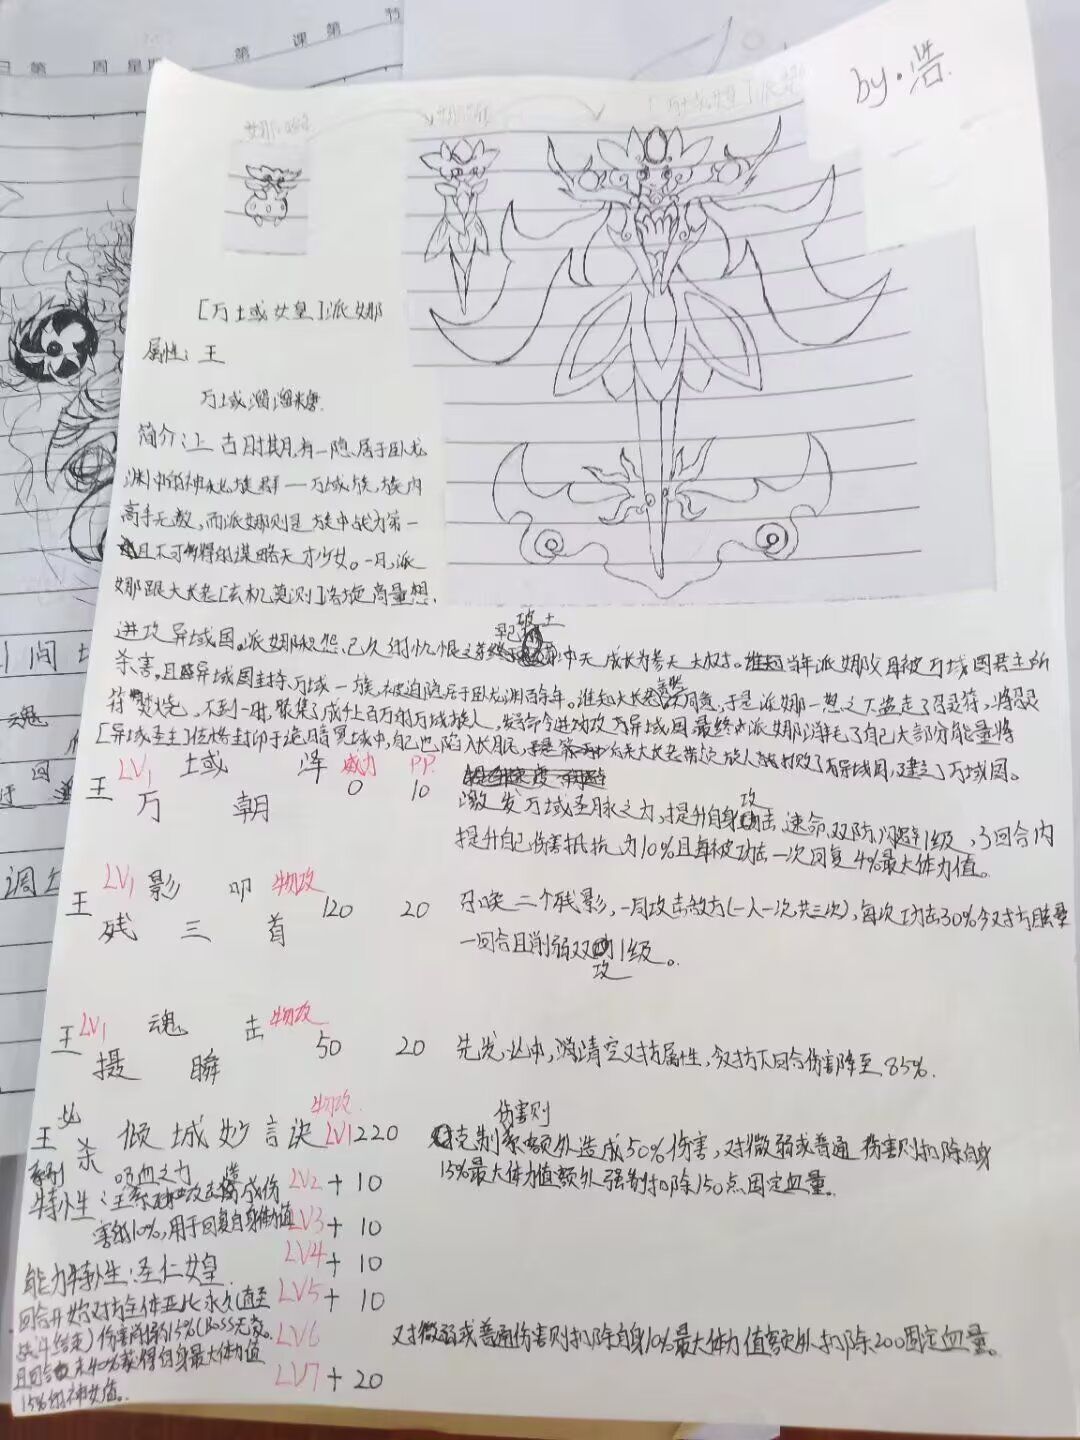 日 第 周 星期 第 课 第 节
by·浩
[万域女皇]派娜
属性：王
万域溜溜糖
简介：上古时期，有一隐居于卧龙
渊中的神秘族群——万域族，族内
高手无数，而派娜则是族中战力第一
且不可多得的谋略天才少女。一日，派
娜跟大长老[玄机莫测]洛 商量想
进攻异域国。派娜积怨已久的仇恨 早已破土 冲天，成长为参天大树。当年派娜父母被万域国君主所
杀害，且 异域国主持，万域一族，被迫隐居于卧龙渊百余年。谁知大长老 同意，于是派娜一怒之下盗走了召灵符，将召灵
符焚烧，不到一时，聚集了成千上百万的万域族人，发号命令进攻万异域国。最终 派娜消耗了自己大部分能量将
[异域圣主] 封印于诡暗冥域中，自己也陷入长眠，后来大长老带领族人 打败了异域国，建立了万域国。
王 LV1 万域朝泽 威力 0 PP. 10 激发万域圣脉之力，提升自身攻击、速命、双防、闪避率1级，3回合内
提升自己伤害抵抗为10%且每被攻击一次回复4%最大体力值。
王 LV1 残影三叩首 物攻 120 20 召唤三个残影，一同攻击敌方(一人一次，共三次)，每次攻击30%令对方眩晕
一回合且削弱双攻1级。
王 LV1 摄魂瞬击 物攻 50 20 先发必中，消清空对方属性，令对方下回合伤害降至85%.
王 必杀 倾城妙言诀 物攻 LV1 220 克制系伤害则额外造成50%伤害，对微弱或普通伤害则扣除自身
15%最大体力值额外强制扣除150点固定血量。
系别特性：吸血之力
王系 攻击造成伤
害的10%，用于回复自身体力值
LV2 + 10
LV3 + 10
LV4 + 10
LV5 + 10
LV6 对微弱或普通伤害则扣除自身10%最大体力值额外扣除200固定血量。
LV7 + 20
能力特性：圣仁女皇
回合开始对方全体亚比永久(直至
战斗结束)伤害削弱15%(Boss无效。
且回合末40%获得自身最大体力值
15%的神女值。